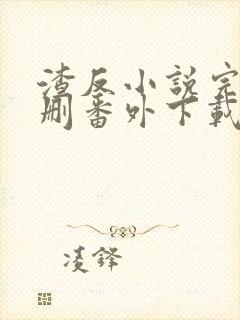 渣反小說完
刪番外下載
凌鋒